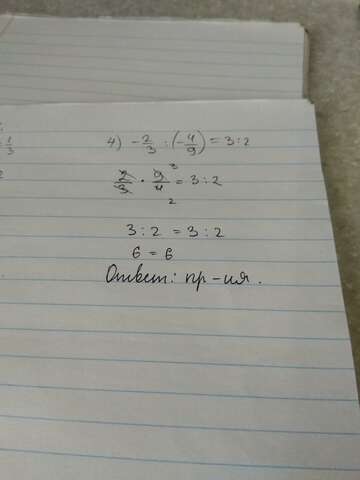 1/3
2
4) -2/3 : (-4/9) = 3 : 2
2/3 · 9/4 = 3 : 2
3
2
3 : 2 = 3 : 2
6 = 6
Ответ: пр-ия.